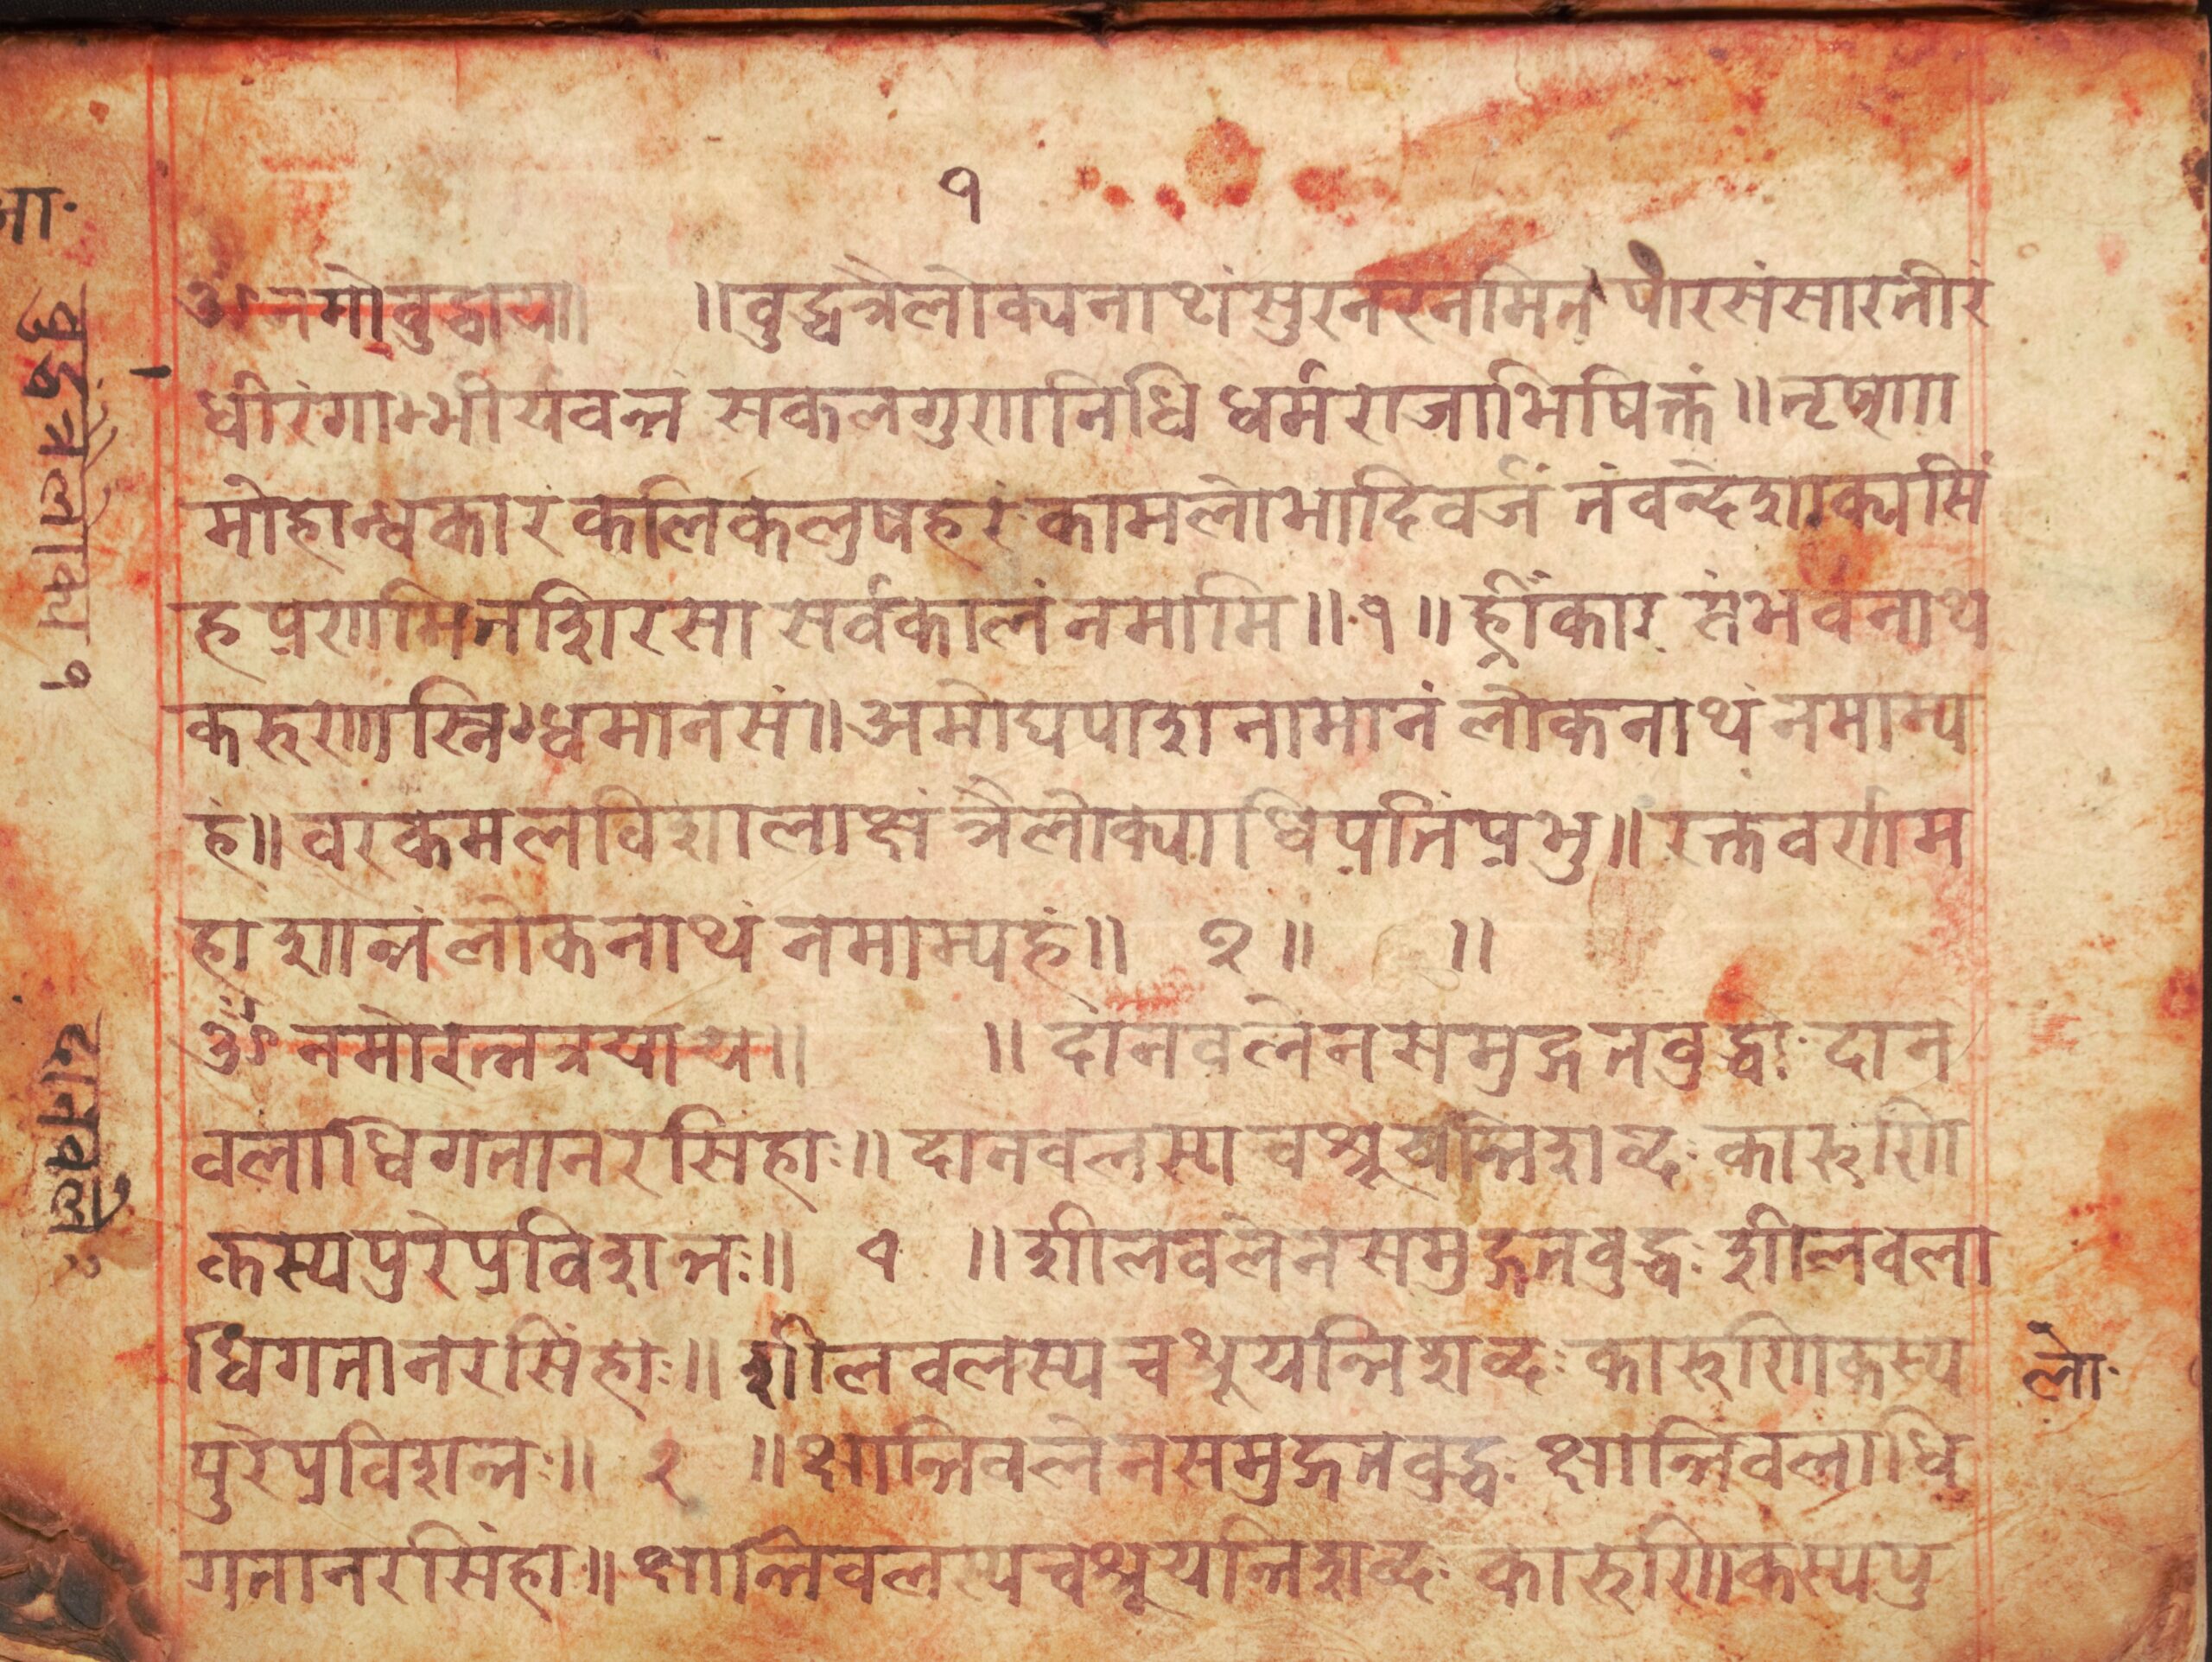 १
ॐ नमो वुद्धाय॥ ॥वुद्धत्रैलोक्यनाथंसुरनरनमितं पारसंसारतीरं
धीरंगाम्भीर्यवन्तं सकलगुणनिधि धर्मराजाभिषिक्तं॥तृष्णा
मोहान्धकारं कलिकलुषहरं कामलोभादिवर्जं तंवन्देशाक्यसिं
ह प्रणमितशिरसा सर्वकालं नमामि॥१॥ ह्रींकार संभवनाथ
करुणास्निग्धमानसं॥अमोघपाश नामानं लोकनाथं नमाम्य
हं॥ वरकमलविशालाक्षं त्रैलोक्याधिपतिंप्रभु॥ रक्तवर्णम
हाशान्तं लोकनाथं नमाम्यहं॥ २॥ ॥
ॐ नमोरत्नत्रयाय॥ ॥ दानवलेन समुद्गतवुद्धोः दान
वलाधिगतानरसिंहाः॥ दानवलस्य चश्रूयन्तिशव्दः कारुणि
कस्यपुरेप्रविशन्तः॥ १ ॥ शीलवलेन समुद्गतवुद्धः शीलवला
धिगतानरसिंहाः॥ शीलवलस्य चश्रूयन्तिशव्दः कारुणिकस्य
पुरेप्रविशन्तः॥ २ ॥क्षान्तिवलेनसमुद्गतवुद्धः क्षान्तिवलाधि
गतानरसिंहा॥ क्षान्तिवलस्यचश्रूयन्तिशव्दः कारुणिकस्यपु
वुद्धंत्रैलोक्य १
दानवले २
लोः